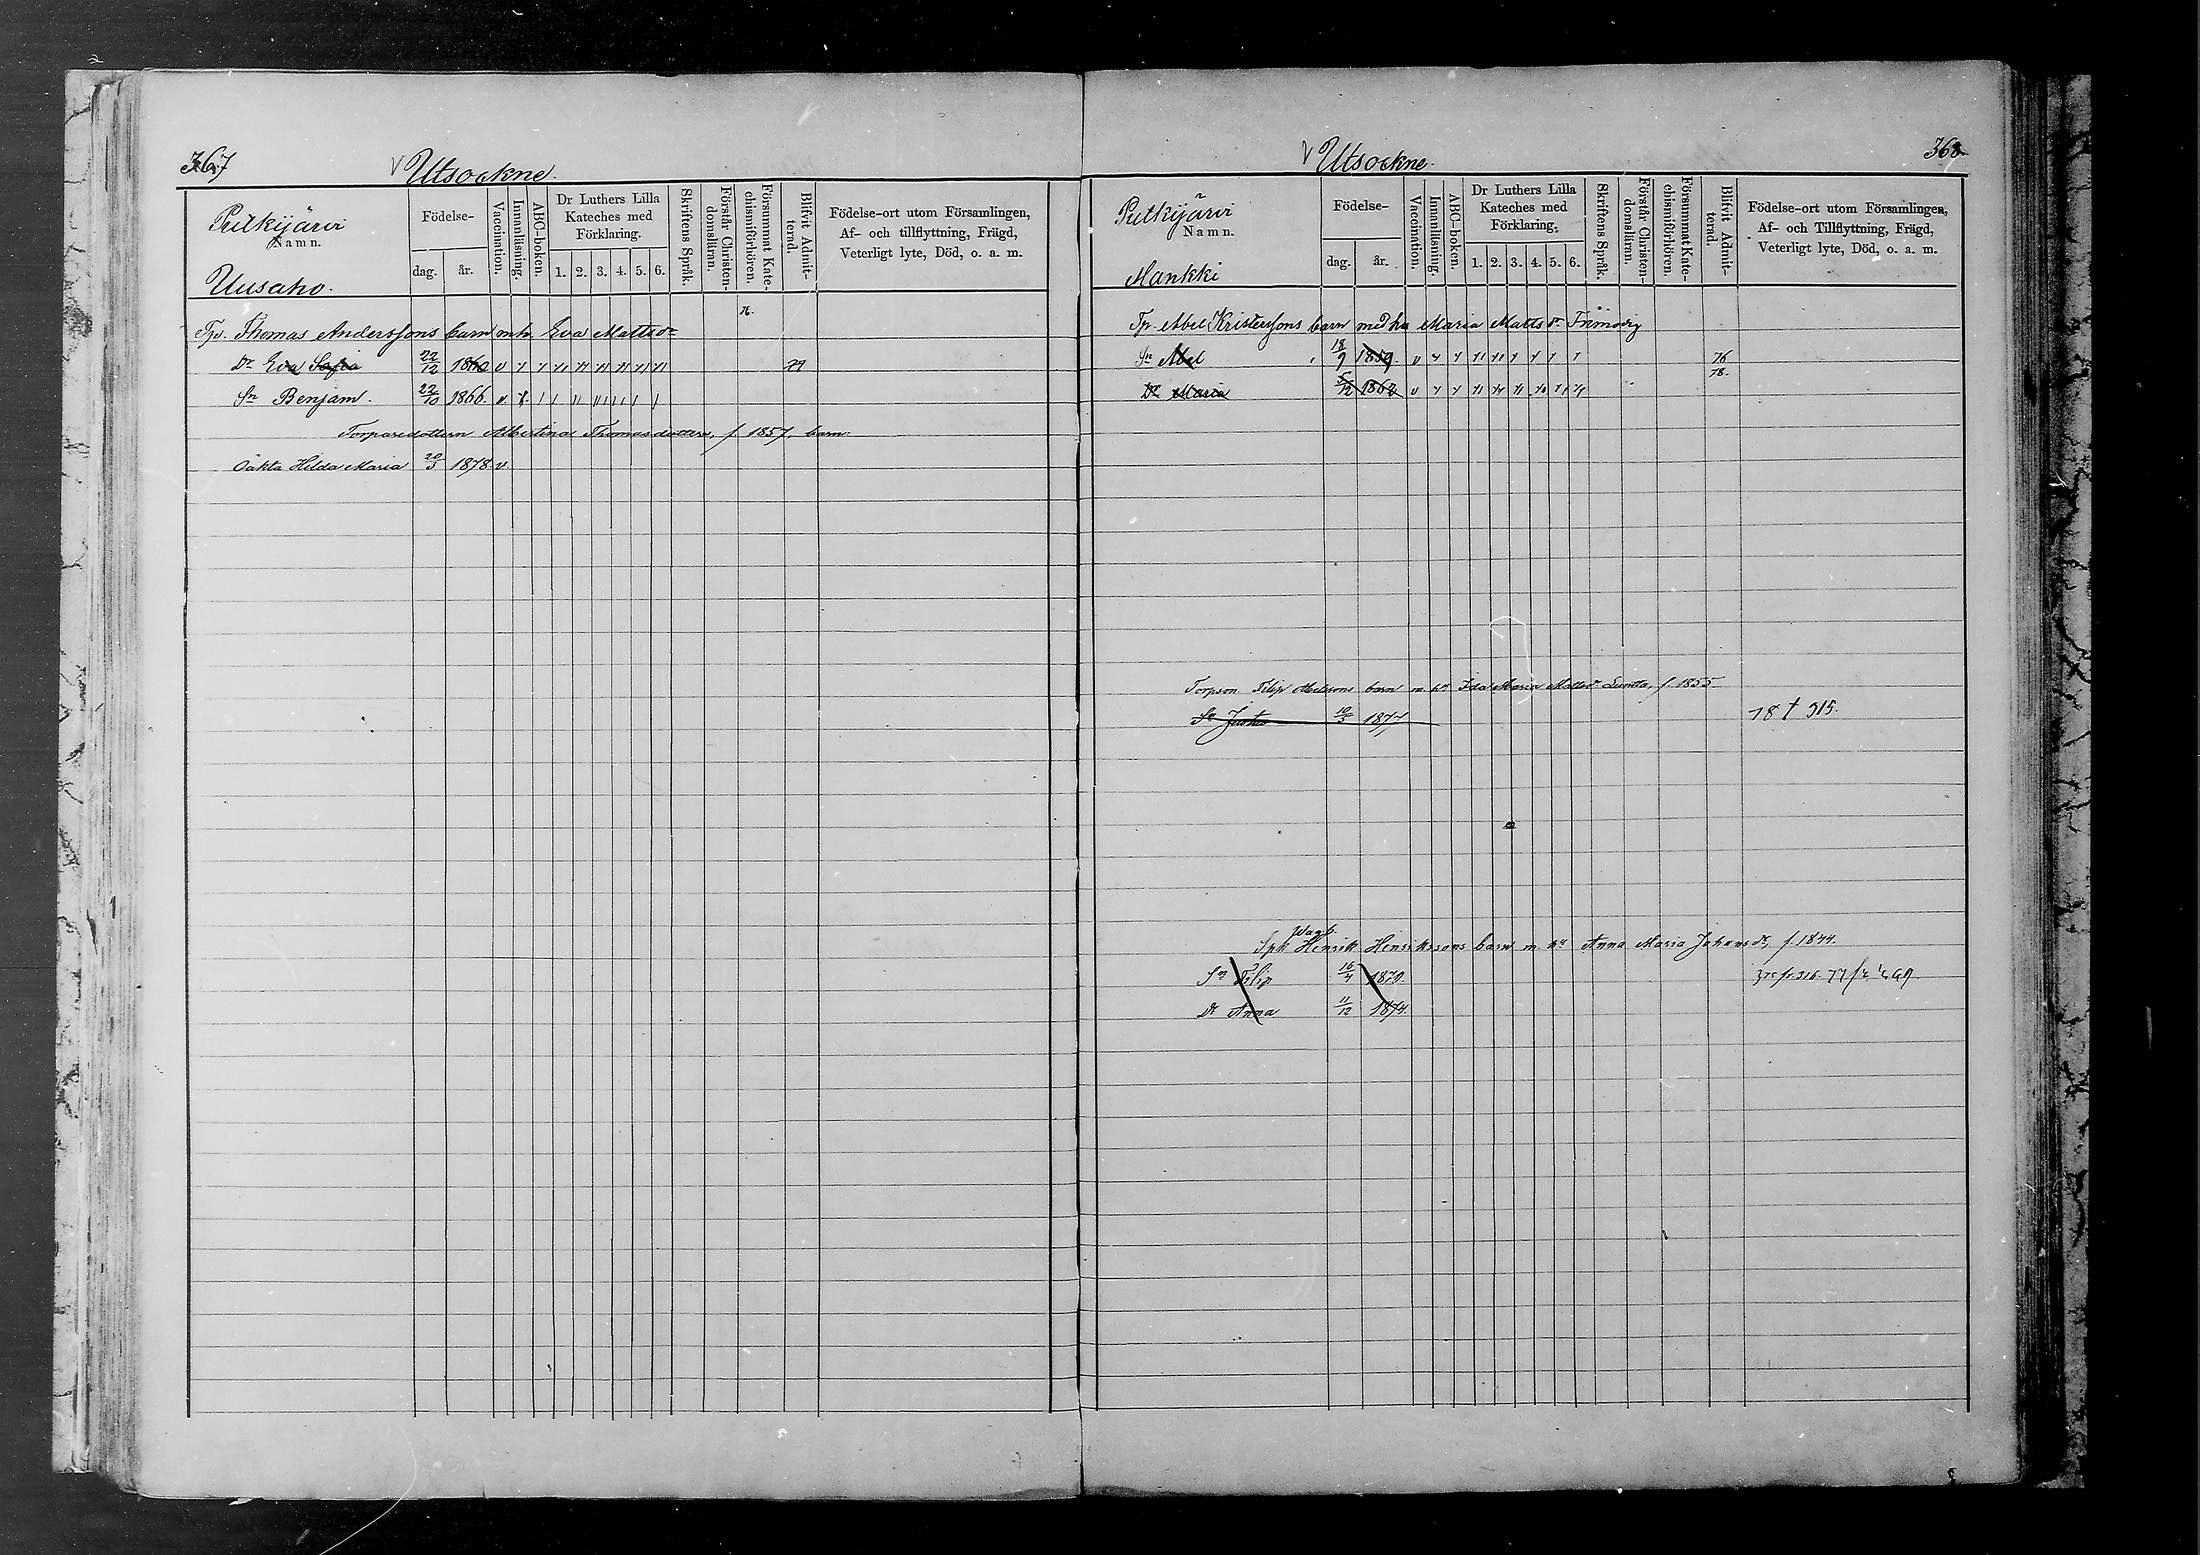 367
Utsockne.
Pitkijärvi
Namn.
Uusaho.
Födelse-
dag. år.
Vaccination.
Innanläsning.
ABC-boken.
Dr Luthers Lilla Kateches med Förklaring.
1. 2. 3. 4. 5. 6.
Skriftens Språk.
Förstår Christendomsläran.
Försummat Katechismiförhören.
Blifvit Admitterad.
Födelse-ort utom Församlingen,
Af- och tillflyttning, Frägd,
Veterligt lyte, Död, o. a. m.
76.
Tp. Thomas Anderssons barn m h. Eva Mattsdr
Dr Eva Sofia 22/12 1860 v 79
Sn Benjam. 22/10 1866 v.
Torparedottern Albertina Thomasdotters, f. 1857, barn:
Oäkta Hilda Maria 20/3 1878 v.
Utsockne.
368
Pitkijärvi
Namn.
Mankki
Födelse-
dag. år.
Vaccination.
Innanläsning.
ABC-boken.
Dr Luthers Lilla Kateches med Förklaring.
1. 2. 3. 4. 5. 6.
Skriftens Språk.
Förstår Christendomsläran.
Försummat Katechismiförhören.
Blifvit Admitterad.
Födelse-ort utom Församlingen,
Af- och Tillflyttning, Frägd,
Veterligt lyte, Död, o. a. m.
Tp. Abel Kristerssons barn med hu Maria Matts dr
Sn Abel 18/9 1859 v 76
Dr Maria 5/12 1862 v 78.
Torpson Filip Abelssons barn m. hu Ida Maria Mattsdr f. 1855.
Sn 10/3 1877 78 † 315.
Henrik Henrikssons barn m. hu Anna Maria Johansdr, f. 1844.
Sn Filip 16/4 1870.
Dr Anna 11/12 1874.